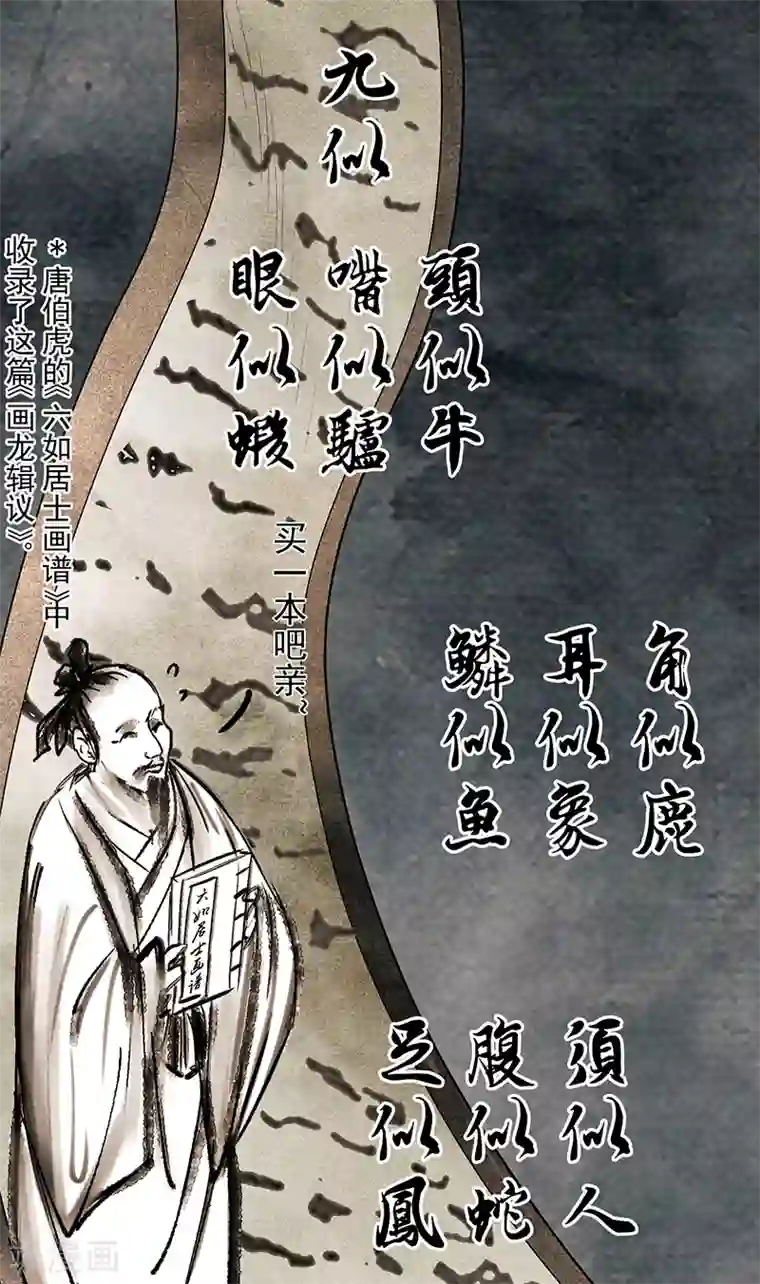 九似
頭似牛
嘴似驢
眼似蝦
*唐伯虎的《六如居士画谱》中
收录了这篇《画龙辑议》.
买一本吧亲~
角似鹿
耳似象
鱗似魚
六如居士画谱
須似人
腹似蛇
足似鳳